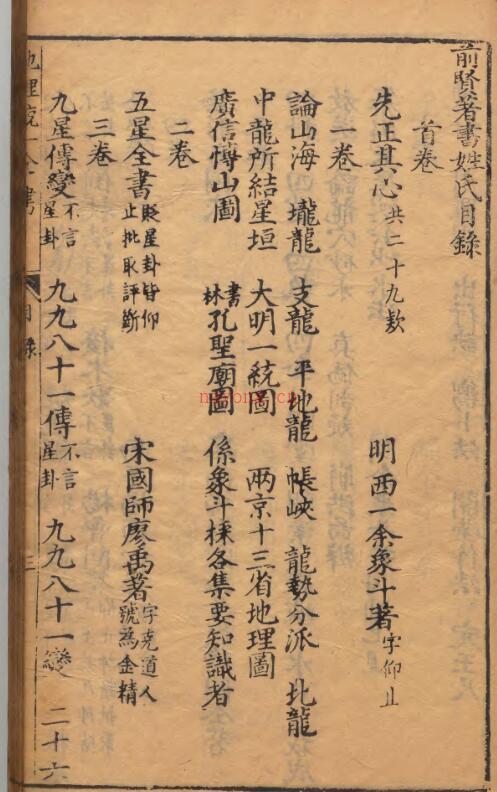 前賢著書姓氏目錄
首卷
先正其心 共二十九款 明西一余象斗著 字仰止
一卷
論山海 壠龍 支龍 平地龍 帳峽 龍勢分派 北龍
中龍所結星垣 大明一統圖 兩京十三省地理圖
廣信博山圖 書林 孔聖廟圖 係象斗採各集要知識者
二卷
五星全書 貶星卦皆仰止批取評斷 宋國師廖禹著 字克道人號為金精
三卷
九星傳變 不言星卦 九九八十一傳 不言星卦 九九八十一變 二十六
地理
全書
目錄
三